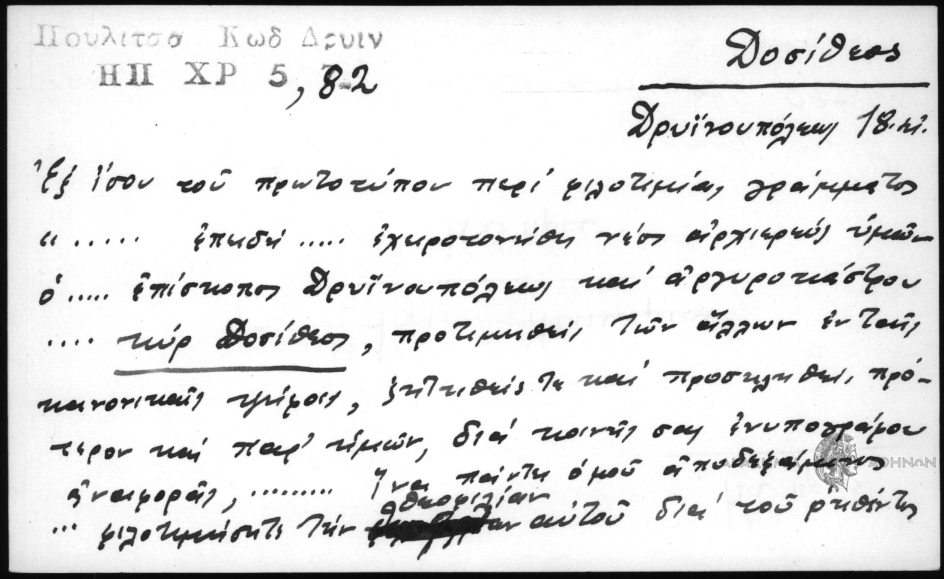 Πουλιτσα Κωδ Δρυιν
ΗΠ ΧΡ 5, 82
Δοσίθεος
Δρυϊνουπόλεως 18.
Ἐξ ἴσου τοῦ πρωτοτύπου περί φιλοτιμίας γράμματος
" ..... ἐπειδή ..... ἐχειροτονήθη νέος ἀρχιερεύς ὑμῶν
ὁ ..... ἐπίσκοπος Δρυϊνουπόλεως καί Ἀργυροκάστρου
.... κύρ Δοσίθεος, προτιμηθείς τῶν ἄλλων ἐν ταῖς
κανονικαῖς ψήφοις, ζητηθείς τε καί προσκληθείς πρό-
τερον καί παρ' ὑμῶν, διά κοινῆς σας ἐνυπογράφου
ἀναφορᾶς, ......... ἵνα πάντες ὁμοῦ ἀποδεξάμενοι
... φιλοτιμήσητε τήν θεοφιλίαν αὐτοῦ διά τοῦ ῥηθέντος
ΑΘΗΝΩΝ